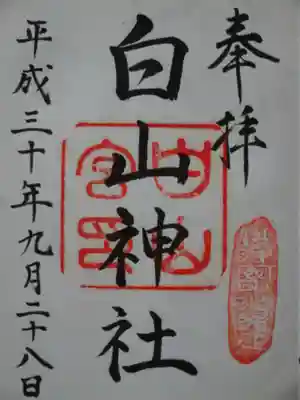 奉拝
白山神社
平成三十年九月二十八日